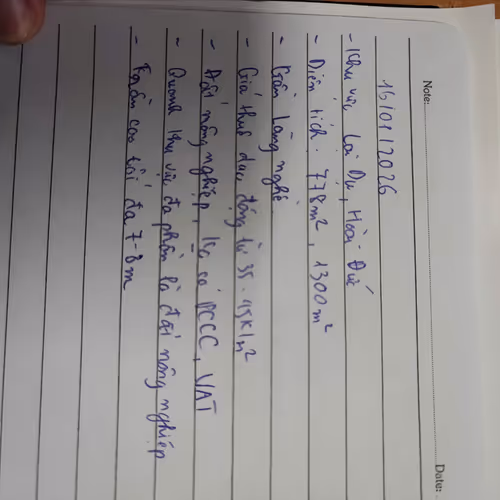 Note:
Date:
16/01/2026
- Khu vực Lai Dụ, Hoài Đức
- Diện tích: 778m², 1300m²
- Gần làng nghề
- Giá thuê dao động từ 35-45k/m²
- Đất nông nghiệp, ko có PCCC, VAT
- Quanh khu vực đa phần là đất nông nghiệp
- Trần cao tối đa 7-8m